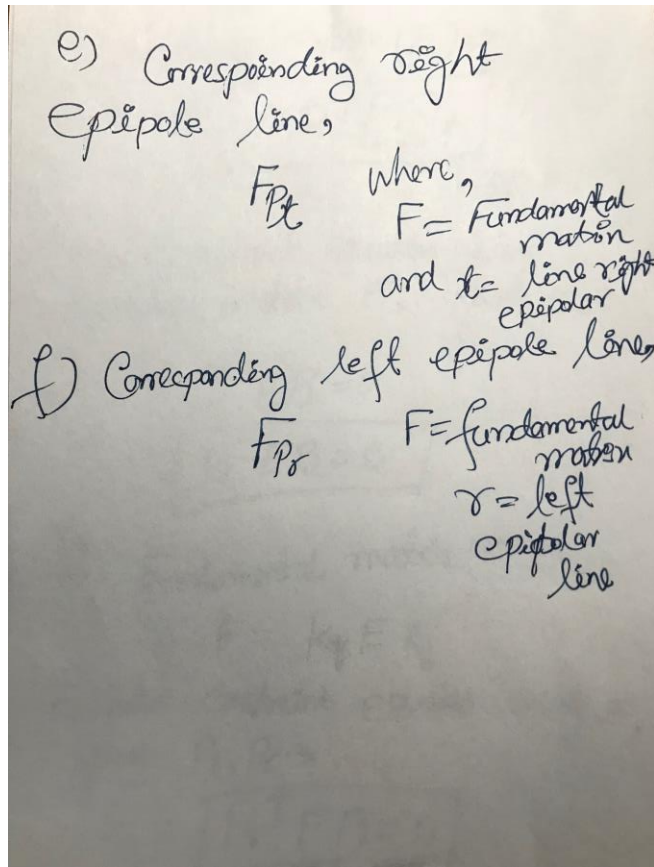 e) Correspoinding right
epipole line,
F_Pt where,
F = Fundamental
matrin
and t = line right
epipolar
f) Correcponding left epipole line,
F_Pr F = fundemental
matrin
r = left
epipolar
line